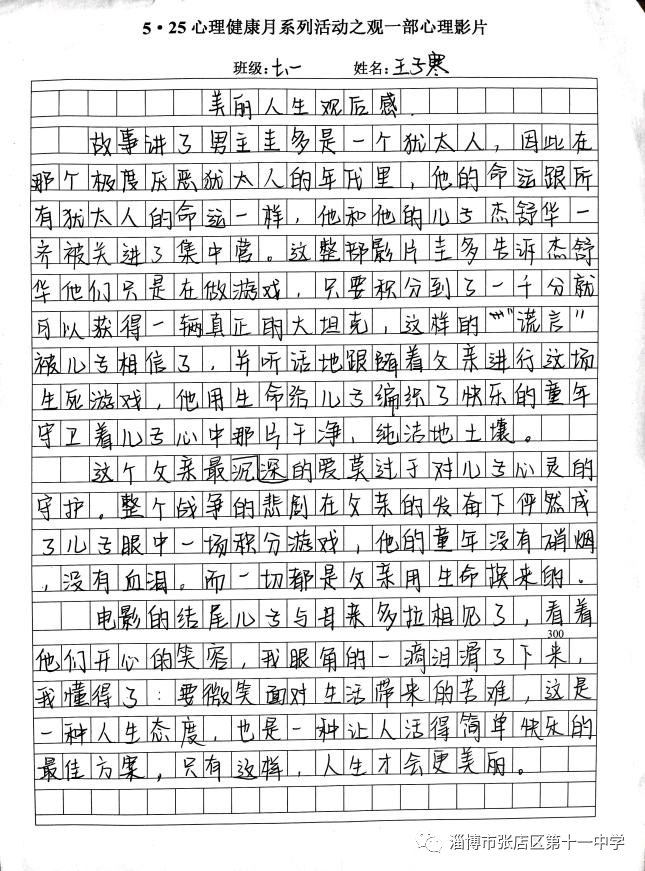 5·25心理健康月系列活动之观一部心理影片
班级:七、一 姓名:王子寒
美丽人生观后感.
故事讲了男主圭多是一个犹太人，因此在
那个极度厌恶犹太人的年代里，他的命运跟所
有犹太人的命运一样，他和他的儿子杰舒华一
齐被关进了集中营。这整部影片圭多告诉杰舒
华他们只是在做游戏，只要积分到了一千分就
可以获得一辆真正的大坦克，这样的"谎言"
被儿子相信了，并听话地跟随着父亲进行这场
生死游戏，他用生命给儿子编织了快乐的童年
守卫着儿子心中那片干净，纯洁地土壤。
这个父亲最沉深的爱莫过于对儿子心灵的
守护。整个战争的悲剧在父亲的发奋下俨然成
了儿子眼中一场积分游戏，他的童年没有硝烟
，没有血泪。而一切都是父亲用生命换来的.
电影的结尾儿子与母亲多拉相见了，看着
300
他们开心的笑容，我眼角的一滴泪滑了下来，
我懂得了:要微笑面对生活带来的苦难，这是
一种人生态度，也是一种让人活得简单快乐的
最佳方案，只有这样，人生才会更美丽。
淄博市张店区第十一中学